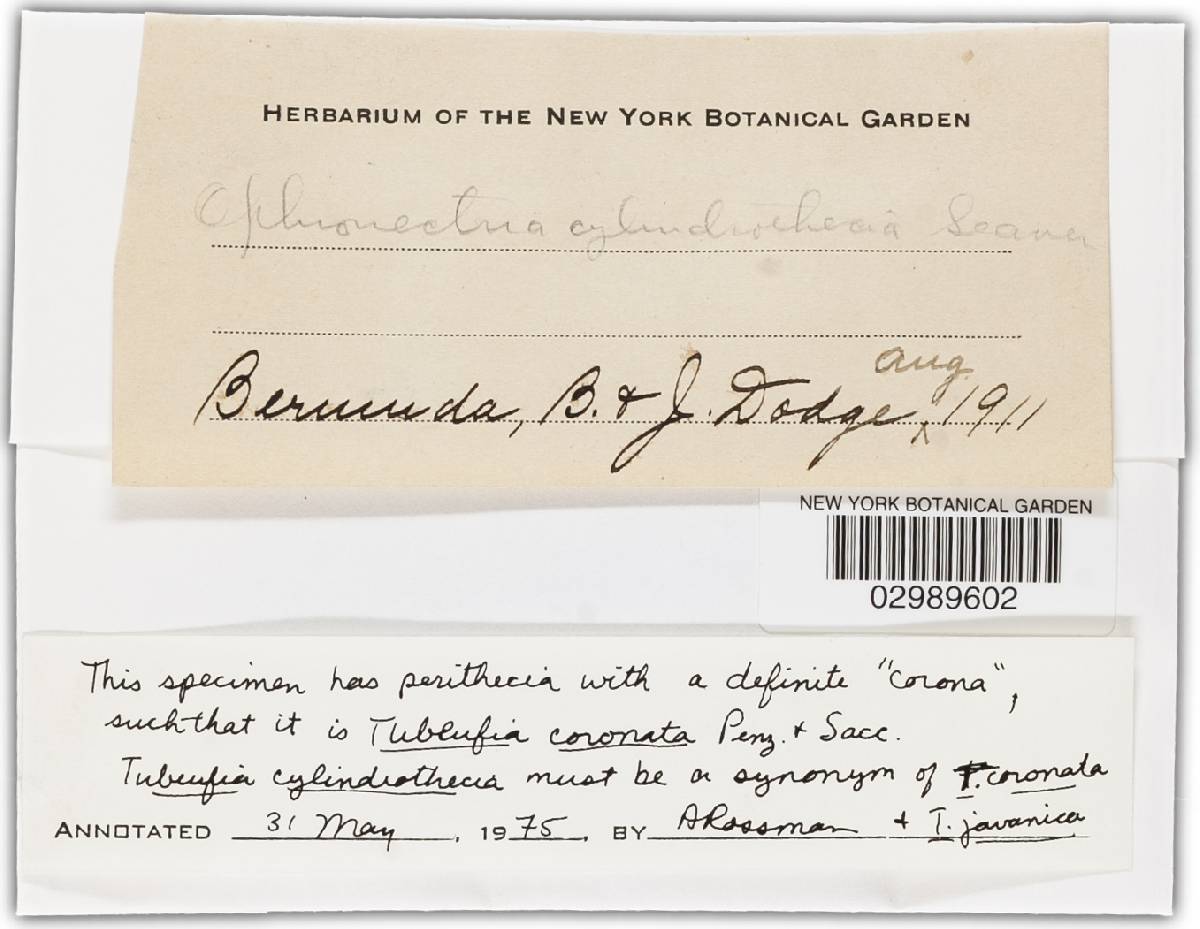 HERBARIUM OF THE NEW YORK BOTANICAL GARDEN
Ophionectria cylindrothecia Seaver
aug.
Bermuda, B. & J. Dodge, ^ 1911
NEW YORK BOTANICAL GARDEN
02989602
This specimen has perithecia with a definite "corona",
such that it is Tubeufia coronata Penz. & Sacc.
Tubeufia cylindrothecia must be a synonym of T. coronata
ANNOTATED 31 May, 1975, BY ARossman & T. javanica